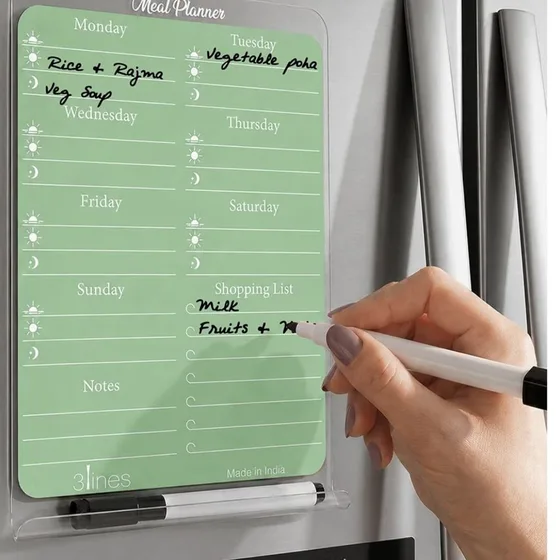 Meal Planner
Monday
Rice & Rajma
Veg Soup
Tuesday
Vegetable poha
Wednesday
Thursday
Friday
Saturday
Sunday
Shopping List
Milk
Fruits &
Notes
3lines
Made in India